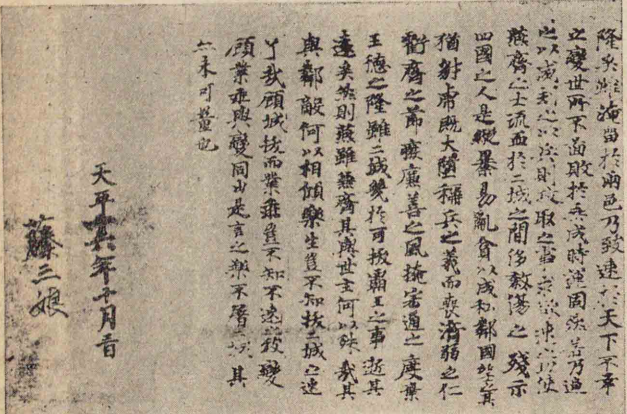 隆矣雖淹留於兩邑乃致速於天下不幸
之變世所不面敗於垂成時運固然若乃逼
之以威劫之以兵則攻取之事求欲速之功使
燕齊之士流血於二城之間侈殺傷之殘示
四國之人是縱暴易亂貪以成私鄰國望之其
猶豺虎既大墮稱兵之義而喪濟弱之仁
虧齊之節廢廉善之風掩宏通之度棄
王德之隆雖二城幾於可拔霸王之事逝其
遠矣然則燕雖兼齊其與世主何以殊哉其
與鄰敵何以相傾樂生豈不知拔二城之速
了哉顧城拔而業乖豈不知不速之致變
顧業乖與變同由是言之樂不屠二城其
亦未可量也
天平十六年十月三日
藤三娘